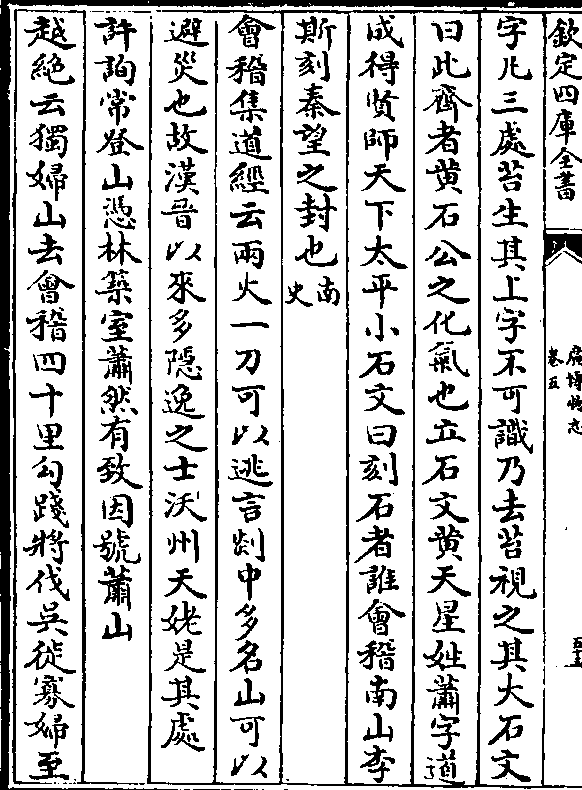 欽定四庫全書
廣博物志
卷五
字凡三處苔生其上字不可識乃去苔視之其大石文
曰此齊者黄石公之化氣也立石文黄天星姓蕭字道
成得賢師天下太平小石文曰刻石者誰會稽南山李
斯刻秦望之封也南史
會稽集道經云兩火一刀可以逃言剡中多名山可以
避災也故漢晉以來多隠逸之士沃州天姥是其處
許詢常登山憑林築室蕭然有致因號蕭山
越絶云獨婦山去會稽四十里勾踐將伐吳徙寡婦至